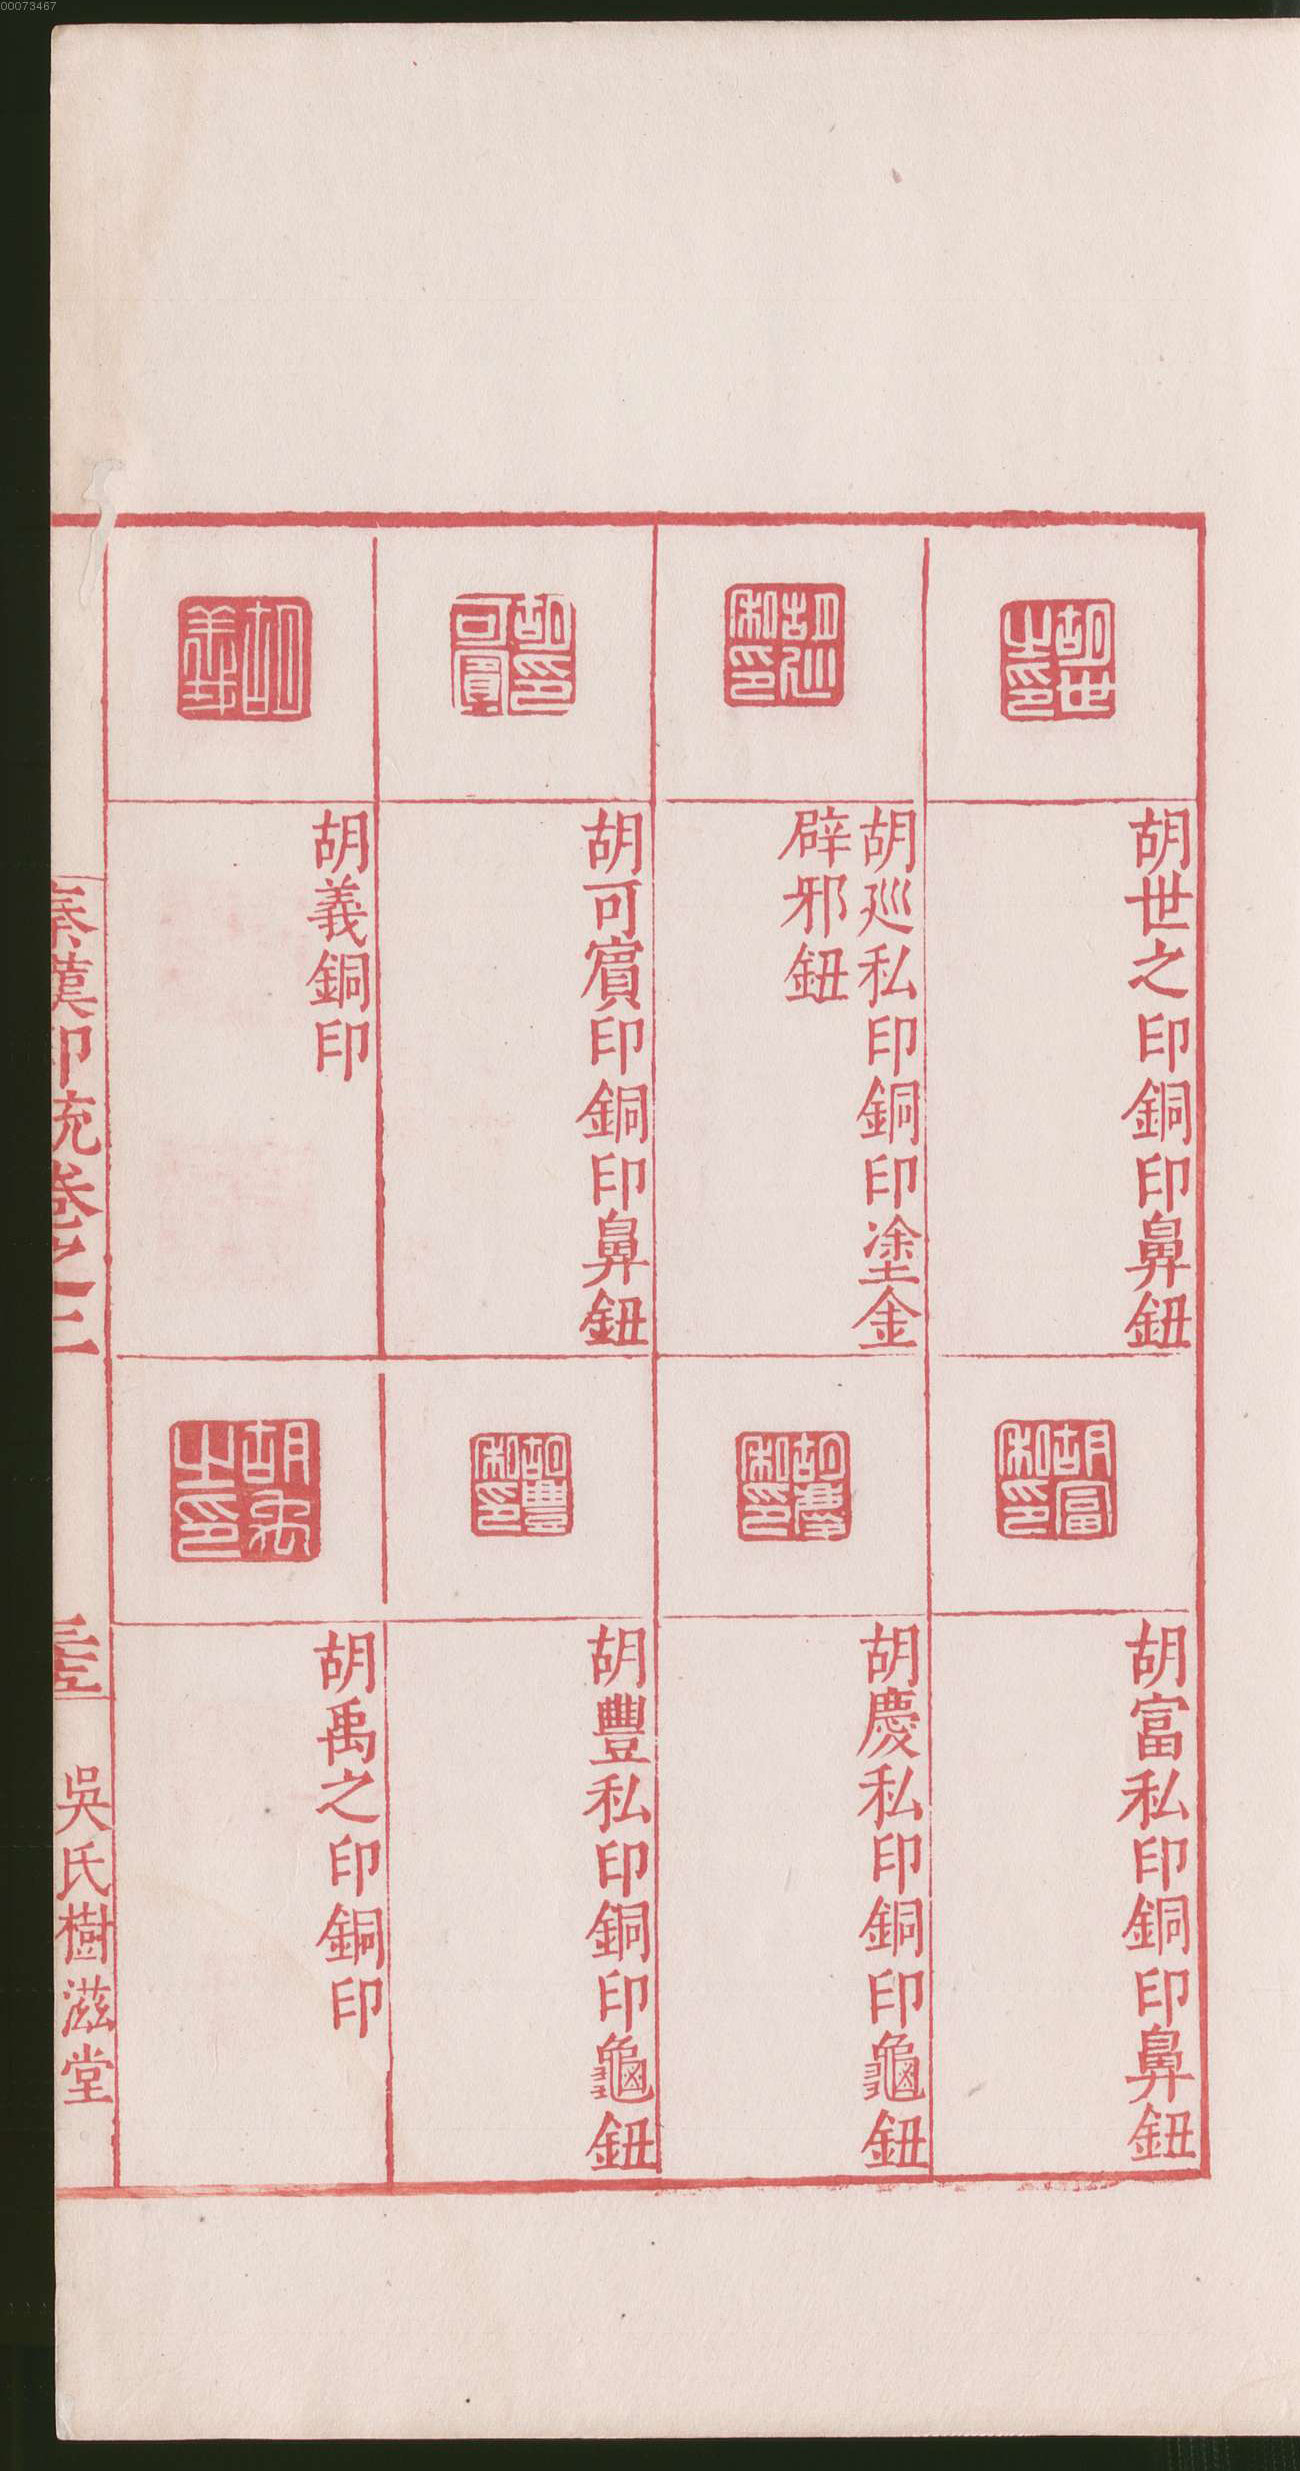 00073467
胡世之印銅印鼻鈕
胡巡私印銅印塗金
辟邪鈕
胡可賔印銅印鼻鈕
胡義銅印
胡富私印銅印鼻鈕
胡慶私印銅印龜鈕
胡豐私印銅印龜鈕
胡禹之印銅印
秦漢印統卷之二
吳氏樹滋堂